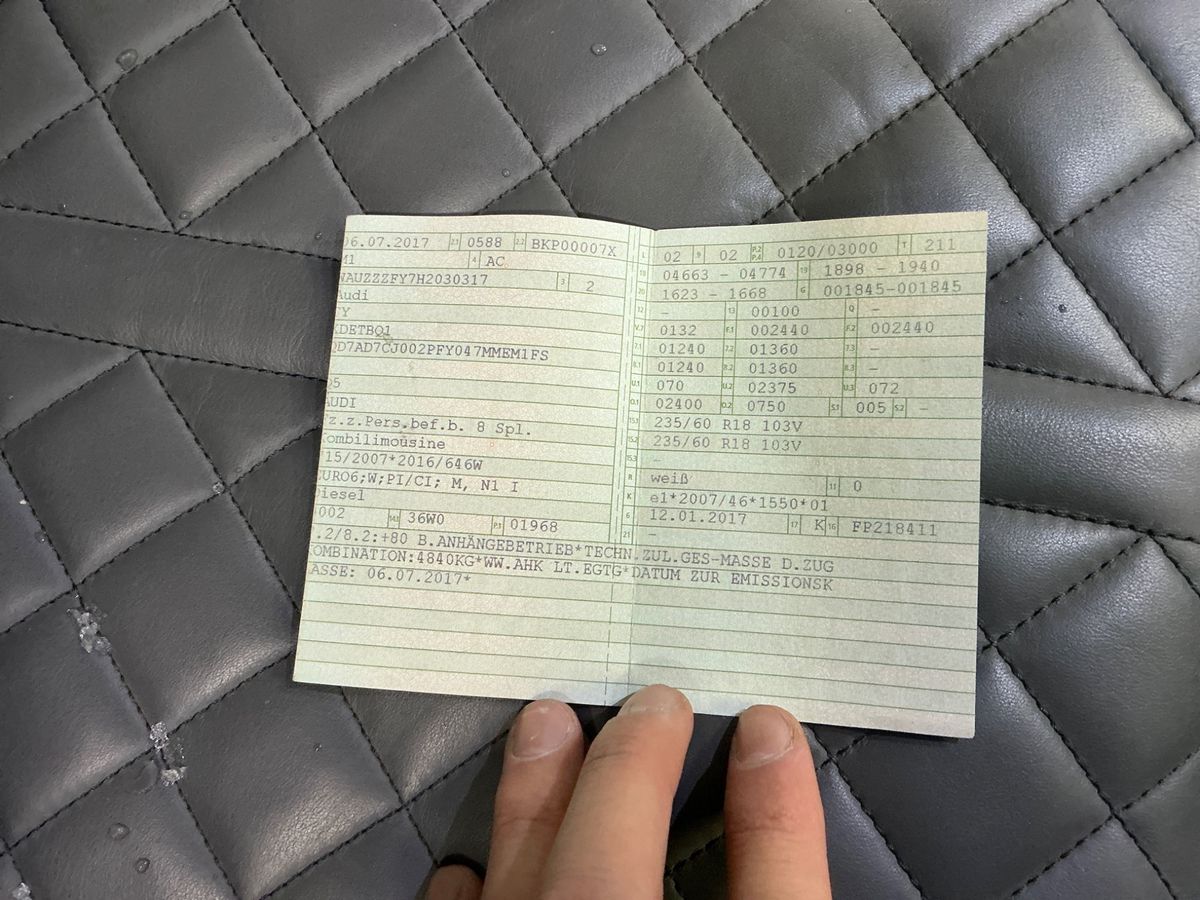 06.07.2017 2.1 0588 2.2 BKP00007X
M1 4 AC
WAUZZZFY7H2030317 3 2
Audi
FY
DETBQ1
D7AD7CJ002PFY047MMEM1FS
AUDI
Fz.z.Pers.bef.b. 8 Spl.
Kombilimousine
715/2007*2016/646W
EURO6;W;PI/CI; M, N1 I
Diesel
002 14.1 36W0 P.1 01968
L 02 9 02 P.2 P.4 0120/03000 T 211
18 04663 - 04774 19 1898 - 1940
20 1623 - 1668 G 001845-001845
12 - 13 00100 Q -
V.7 0132 F.1 002440 F.2 002440
7.1 01240 7.2 01360 7.3 -
8.1 01240 8.2 01360 8.3 -
U.1 070 U.2 02375 U.3 072
O.1 02400 O.2 0750 S.1 005 S.2 -
15.1 235/60 R18 103V
15.2 235/60 R18 103V
15.3 -
R weiß 11 0
K e1*2007/46*1550*01
6 12.01.2017 17 K 16 FP218411
21 -
.2/8.2:+80 B.ANHÄNGEBETRIEB*TECHN.ZUL.GES-MASSE D.ZUG
KOMBINATION:4840KG*WW.AHK LT.EGTG*DATUM ZUR EMISSIONSK
LASSE: 06.07.2017*